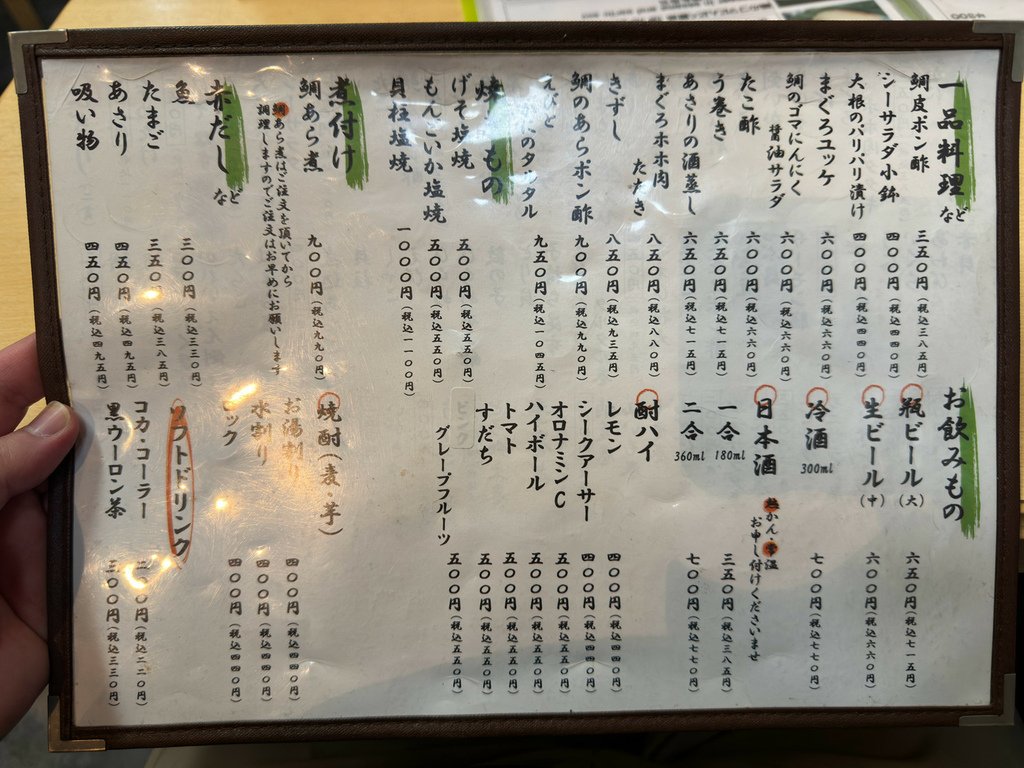 一品料理 など
鯛皮ポン酢 三五〇円（税込三八五円）
シーサラダ小鉢 四〇〇円（税込四四〇円）
大根のパリパリ漬け 四〇〇円（税込四四〇円）
まぐろユッケ 六〇〇円（税込六六〇円）
鯛のゴマにんにく
醤油サラダ 六〇〇円（税込六六〇円）
たこ酢 六〇〇円（税込六六〇円）
う巻き 六五〇円（税込七一五円）
あさりの酒蒸し 六五〇円（税込七一五円）
まぐろホホ肉
たたき 八〇〇円（税込八八〇円）
きずし 八五〇円（税込九三五円）
鯛のあらポン酢 九〇〇円（税込九九〇円）
えびと
のタルタル 九五〇円（税込一〇四五円）
焼きもの
げそ塩焼 五〇〇円（税込五五〇円）
もんごいか塩焼 五〇〇円（税込五五〇円）
貝柱塩焼 一〇〇〇円（税込一一〇〇円）
煮付け
鯛あら煮 九〇〇円（税込九九〇円）
鯛あら煮はご注文を頂いてから
調理しますのでご注文はお早めにお願いします
赤だし など
魚 三〇〇円（税込三三〇円）
たまご 三五〇円（税込三八五円）
あさり 四五〇円（税込四九五円）
吸い物 四五〇円（税込四九五円）
お飲みもの
瓶ビール（大） 六五〇円（税込七一五円）
生ビール（中） 六〇〇円（税込六六〇円）
冷酒 300ml 七〇〇円（税込七七〇円）
日本酒 熱かん・常温
お申し付けくださいませ
一合 180ml 三五〇円（税込三八五円）
二合 360ml 七〇〇円（税込七七〇円）
酎ハイ
レモン 四〇〇円（税込四四〇円）
シークアーサー 四〇〇円（税込四四〇円）
オロナミンC 五〇〇円（税込五五〇円）
ハイボール 五〇〇円（税込五五〇円）
トマト 五〇〇円（税込五五〇円）
すだち 五〇〇円（税込五五〇円）
ピンク
グレープフルーツ 五〇〇円（税込五五〇円）
焼酎（麦・芋）
お湯割り 四〇〇円（税込四四〇円）
水割り 四〇〇円（税込四四〇円）
ロック 四〇〇円（税込四四〇円）
ソフトドリンク
コカ・コーラー 二〇〇円（税込二二〇円）
黒ウーロン茶 三〇〇円（税込三三〇円）